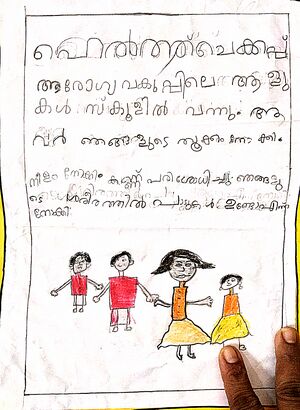 ഹെൽത്ത് ചെക്കപ്പ്
ആരോഗ്യ വകുപ്പിലെ ആളു
കൾ സ്കൂളിൽ വന്നു. അ
വർ ഞങ്ങളുടെ തൂക്കം നോക്കി.
നീളം നോക്കി. കണ്ണ് പരിശോധിച്ചു. ഞങ്ങളു
ടെ ശരീരത്തിൽ പാടുകൾ ഉണ്ടോ എന്ന്
നോക്കി